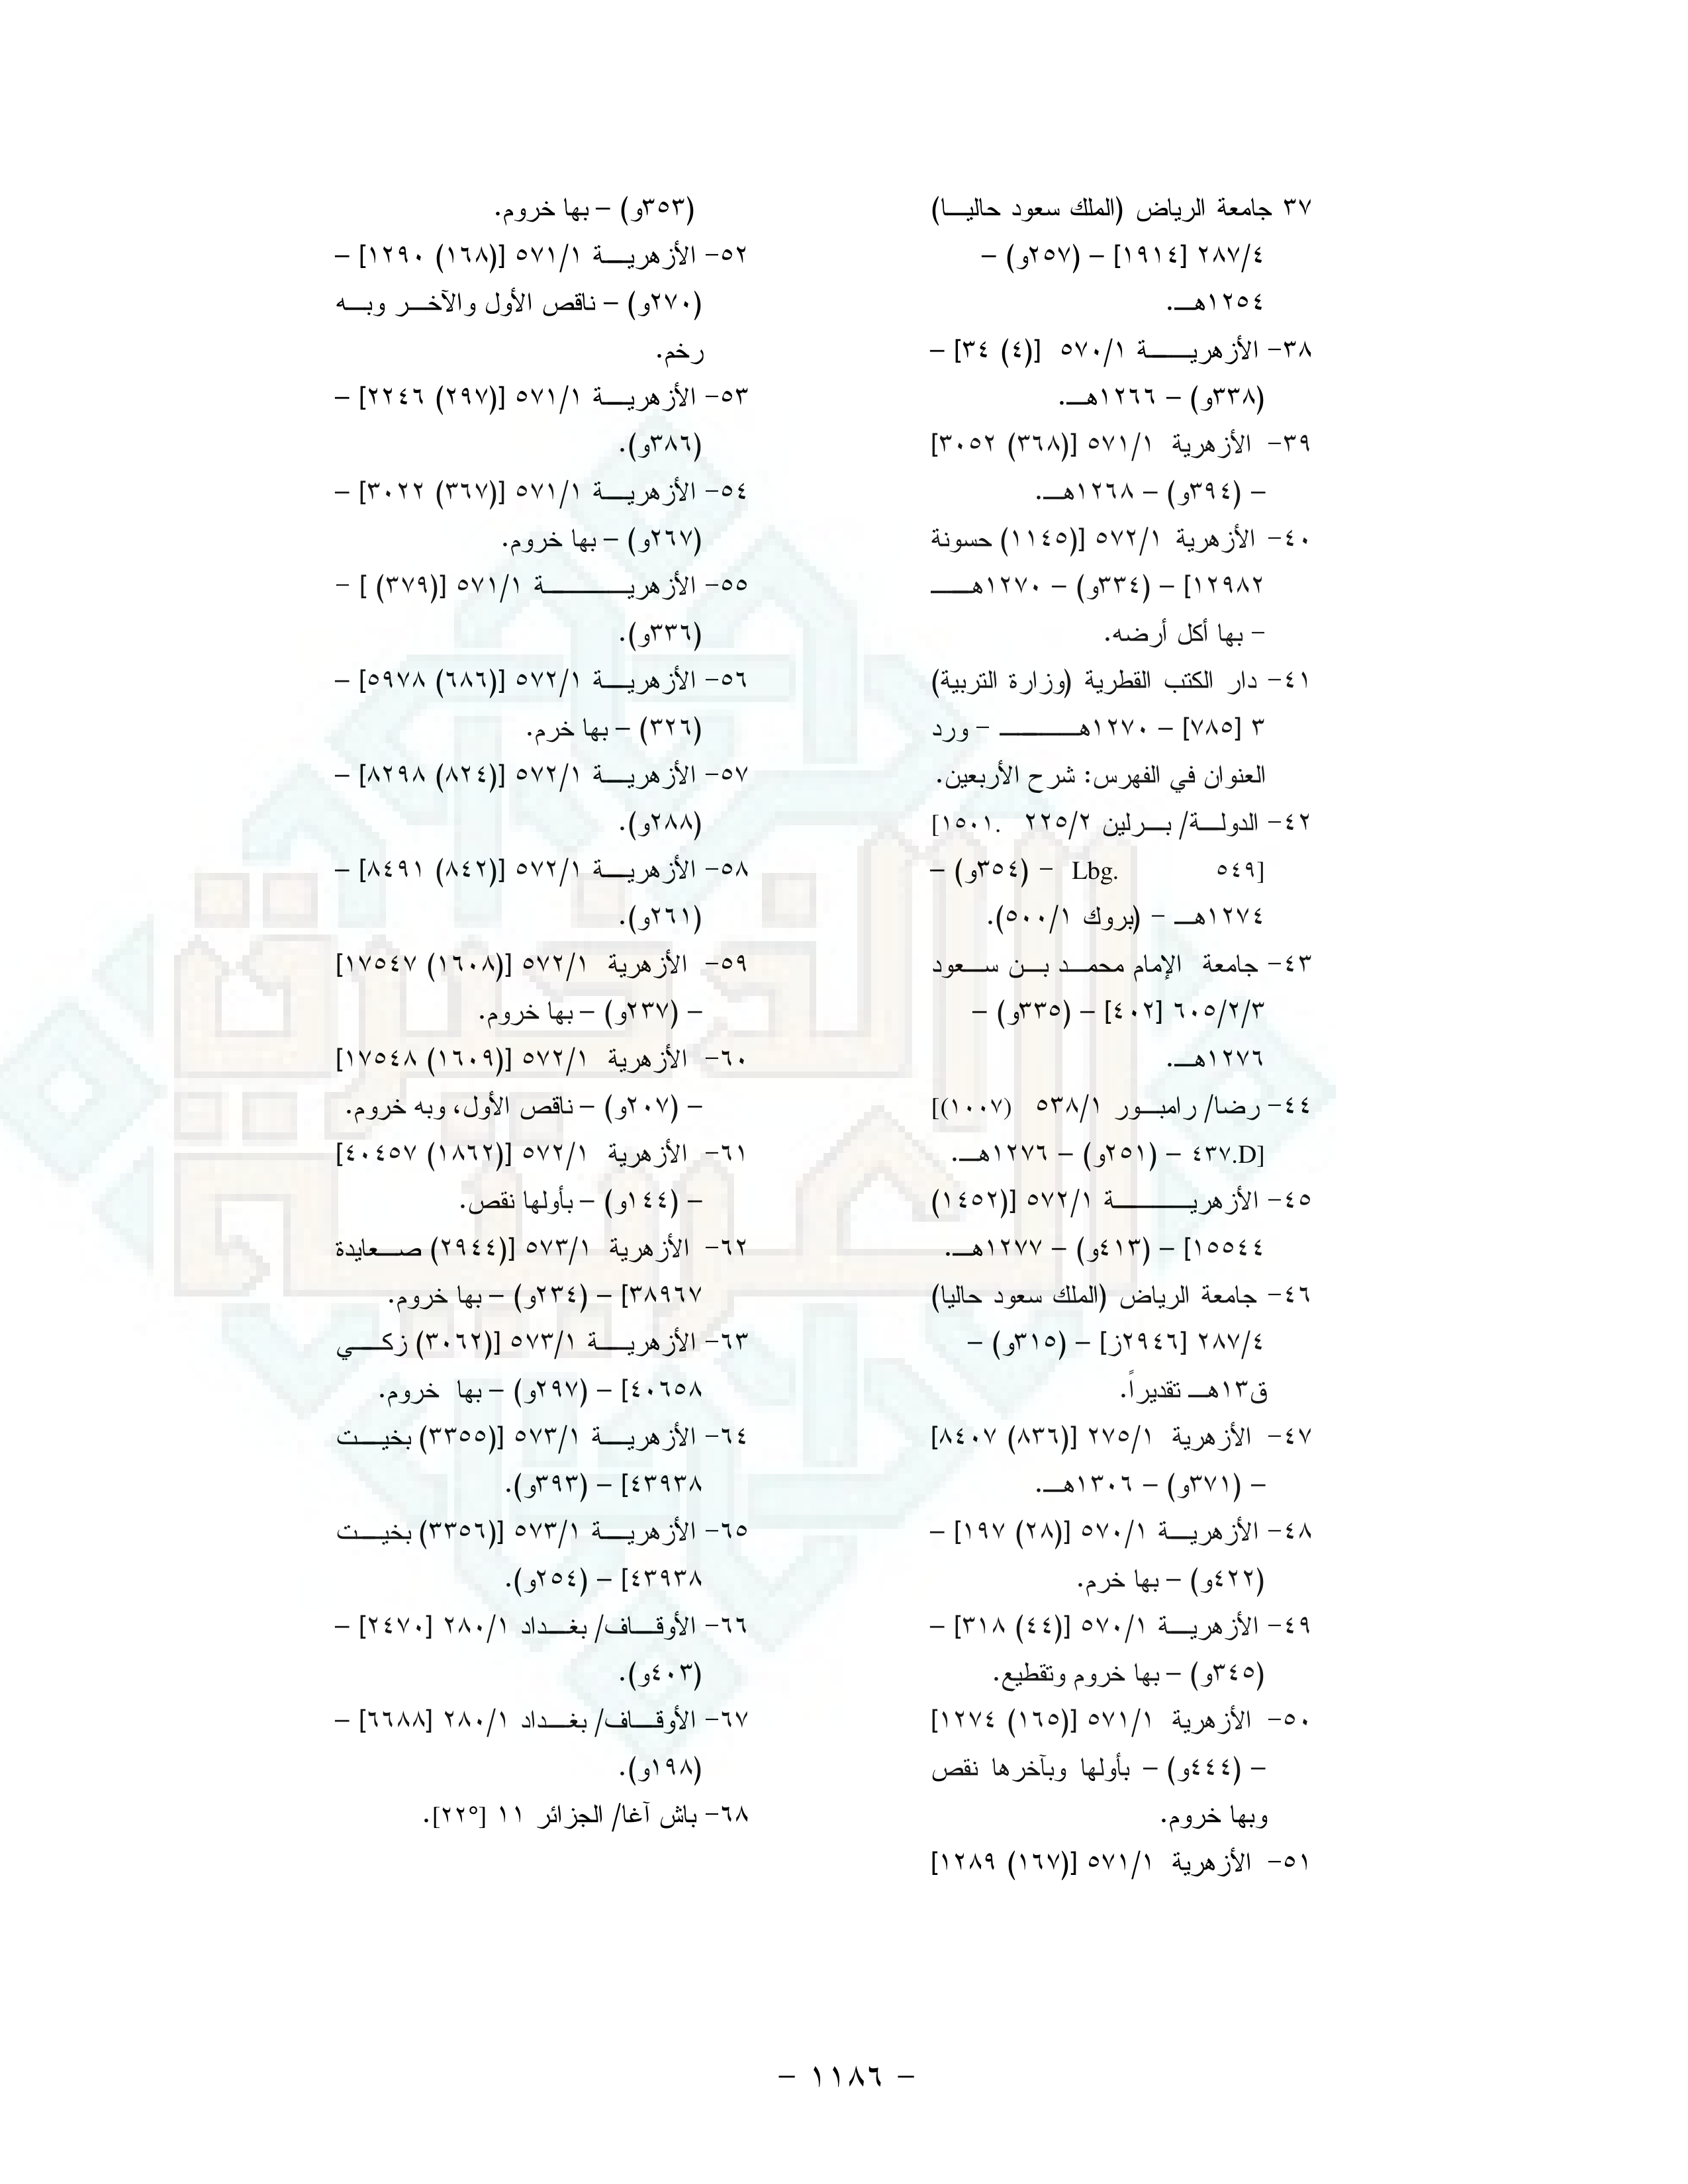 ٣٧ جامعة الرياض (الملك سعود حاليـــا)
٢٨٧/٤ [١٩١٤] – (٢٥٧و) –
١٢٥٤هــ.
٣٨- الأزهريــــــة ٥٧٠/١ [(٤) ٣٤] –
(٣٣٨و) – ١٢٦٦هــ.
٣٩- الأزهرية ٥٧١/١ [(٣٦٨) ٣٠٥٢]
– (٣٩٤و) – ١٢٦٨هــ.
٤٠- الأزهرية ٥٧٢/١ [(١١٤٥) حسونة
١٢٩٨٢] – (٣٣٤و) – ١٢٧٠هــــ
– بها أكل أرضه.
٤١- دار الكتب القطرية (وزارة التربية)
٣ [٧٨٥] – ١٢٧٠هـــــــــ – ورد
العنوان في الفهرس: شرح الأربعين.
٤٢- الدولـــة/ بـــرلين ٢٢٥/٢ [١٥٠١.
٥٤٩] Lbg. – (٣٥٤و) –
١٢٧٤هــ – (بروك ٥٠٠/١).
٤٣- جامعة الإمام محمـــد بـــن ســـعود
٦٠٥/٢/٣ [٤٠٢] – (٣٣٥و) –
١٢٧٦هــ.
٤٤- رضا/ رامبـــور ٥٣٨/١ [(١٠٠٧)
٤٣٧.D] – (٢٥١و) – ١٢٧٦هــ.
٤٥- الأزهريـــــــــة ٥٧٢/١ [(١٤٥٢)
١٥٥٤٤] – (٤١٣و) – ١٢٧٧هــ.
٤٦- جامعة الرياض (الملك سعود حاليا)
٢٨٧/٤ [٢٩٤٦ز] – (٣١٥و) –
ق١٣هــ تقديراً.
٤٧- الأزهرية ٢٧٥/١ [(٨٣٦) ٨٤٠٧]
– (٣٧١و) – ١٣٠٦هــ.
٤٨- الأزهريـــة ٥٧٠/١ [(٢٨) ١٩٧] –
(٤٢٢و) – بها خرم.
٤٩- الأزهريـــة ٥٧٠/١ [(٤٤) ٣١٨] –
(٣٤٥و) – بها خروم وتقطيع.
٥٠- الأزهرية ٥٧١/١ [(١٦٥) ١٢٧٤]
– (٤٤٤و) – بأولها وبآخرها نقص
وبها خروم.
٥١- الأزهرية ٥٧١/١ [(١٦٧) ١٢٨٩]
(٣٥٣و) – بها خروم.
٥٢- الأزهريـــة ٥٧١/١ [(١٦٨) ١٢٩٠] –
(٢٧٠و) – ناقص الأول والآخـــر وبـــه
رخم.
٥٣- الأزهريـــة ٥٧١/١ [(٢٩٧) ٢٢٤٦] –
(٣٨٦و).
٥٤- الأزهريـــة ٥٧١/١ [(٣٦٧) ٣٠٢٢] –
(٢٦٧و) – بها خروم.
٥٥- الأزهريـــــــــة ٥٧١/١ [(٣٧٩) ] –
(٣٣٦و).
٥٦- الأزهريـــة ٥٧٢/١ [(٦٨٦) ٥٩٧٨] –
(٣٢٦) – بها خرم.
٥٧- الأزهريـــة ٥٧٢/١ [(٨٢٤) ٨٢٩٨] –
(٢٨٨و).
٥٨- الأزهريـــة ٥٧٢/١ [(٨٤٢) ٨٤٩١] –
(٢٦١و).
٥٩- الأزهرية ٥٧٢/١ [(١٦٠٨) ١٧٥٤٧]
– (٢٣٧و) – بها خروم.
٦٠- الأزهرية ٥٧٢/١ [(١٦٠٩) ١٧٥٤٨]
– (٢٠٧و) – ناقص الأول، وبه خروم.
٦١- الأزهرية ٥٧٢/١ [(١٨٦٢) ٤٠٤٥٧]
– (١٤٤و) – بأولها نقص.
٦٢- الأزهرية ٥٧٣/١ [(٢٩٤٤) صـــعايدة
٣٨٩٦٧] – (٢٣٤و) – بها خروم.
٦٣- الأزهريـــة ٥٧٣/١ [(٣٠٦٢) زكـــي
٤٠٦٥٨] – (٢٩٧و) – بها خروم.
٦٤- الأزهريـــة ٥٧٣/١ [(٣٣٥٥) بخيـــت
٤٣٩٣٨] – (٣٩٣و).
٦٥- الأزهريـــة ٥٧٣/١ [(٣٣٥٦) بخيـــت
٤٣٩٣٨] – (٢٥٤و).
٦٦- الأوقـــاف/ بغـــداد ٢٨٠/١ [٢٤٧٠] –
(٤٠٣و).
٦٧- الأوقـــاف/ بغـــداد ٢٨٠/١ [٦٦٨٨] –
(١٩٨و).
٦٨- باش آغا/ الجزائر ١١ [٢٢°].
– ١١٨٦ –